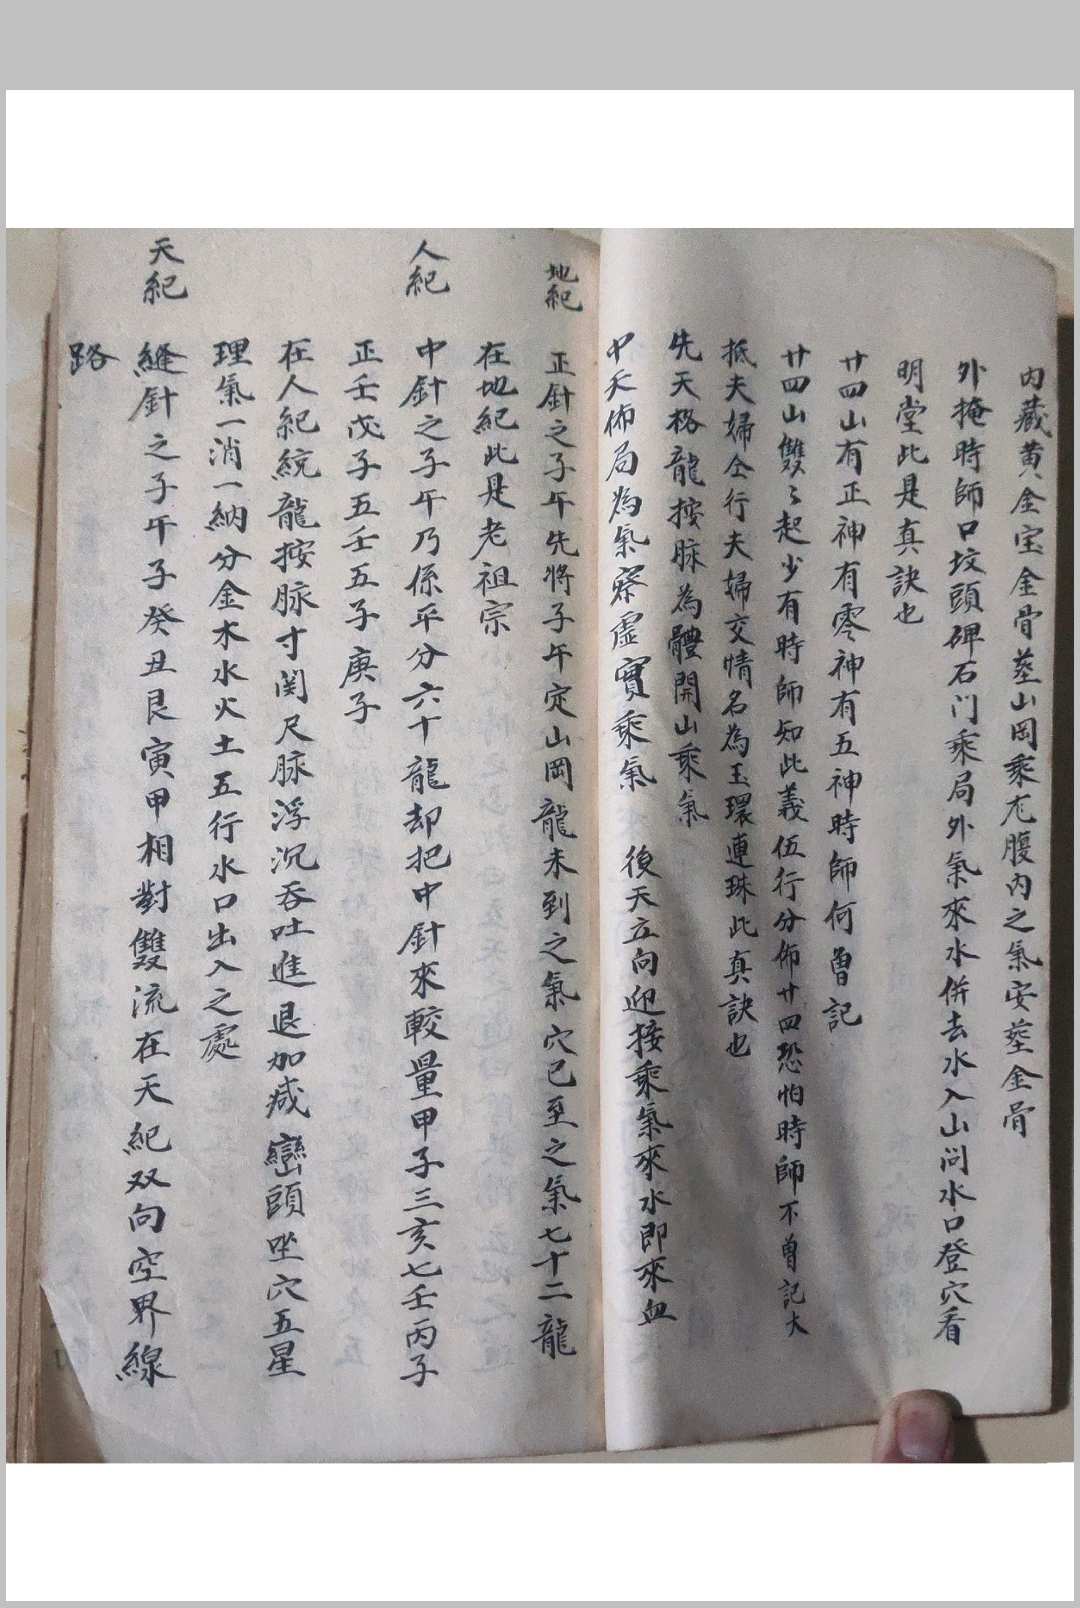 內藏黄金宝金骨塟山岡乘尤腹內之氣安塟金骨
外掩時師口坟頭碑石门乘局外氣來水併去水入山问水口登穴看
明堂此是真訣也
廿四山有正神有零神有五神時師何曽記
廿四山雙〻起少有時師知此義伍行分佈廿四恐怕時師不曽記大
抵夫婦仝行夫婦交情名為玉環連珠此真訣也
先天格龍按脉為體開山乘氣
中天佈局為氣察虛實乘氣 後天立向迎接乘氣來水即來血
地紀 正針之子午先將子午定山岡龍未到之氣穴已至之氣七十二龍
在地紀此是老祖宗
人紀 中針之子午乃係平分六十龍却把中針來較量甲子三亥七壬丙子
正壬戊子五壬五子庚子
在人紀統龍按脉寸関尺脉浮沉吞吐進退加减巒頭坐穴五星
理氣一消一納分金木水火土五行水口出入之處
天紀 縫針之子午子癸丑艮寅甲相對雙流在天紀双向空界線
路